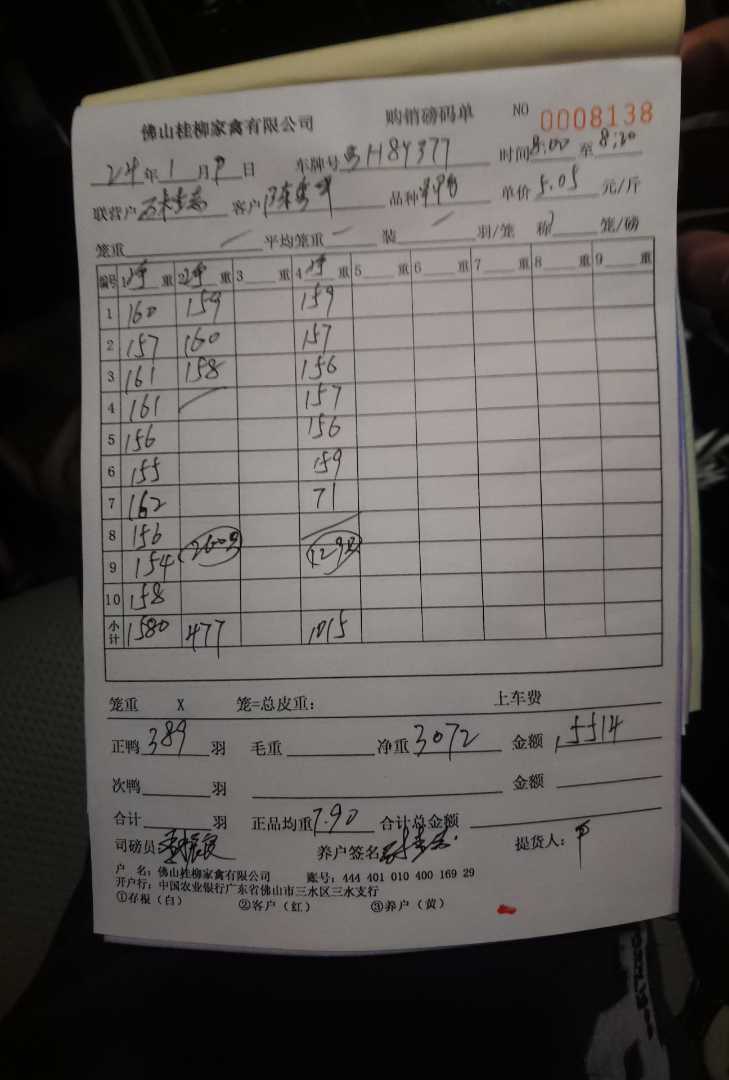 佛山桂柳家禽有限公司 购销磅码单 NO 0008138
24年1月9日 车牌号 H84377 时间8:00至8:20
联营户 客户陈 品种 单价5.05元/斤
笼重 平均笼重 装 羽/笼 称 笼/磅
编号 1净重 2净重 3 重 4净重 5 重 6 重 7 重 8 重 9 重
1 160 159 159
2 157 160 157
3 161 158 156
4 161 157
5 156 156
6 155 159
7 162 71
8 156
9 154
10 158
小计 1580 477 1015
笼重 X 笼=总皮重: 上车费
正鸭389羽 毛重 净重3072 金额15514
次鸭 羽 金额
合计 羽 正品均重7.90 合计总金额
司磅员 养户签名 提货人:
户 名: 佛山桂柳家禽有限公司 账号: 444 401 010 400 169 29
开户行: 中国农业银行广东省佛山市三水区三水支行
①存根(白) ②客户(红) ③养户(黄)